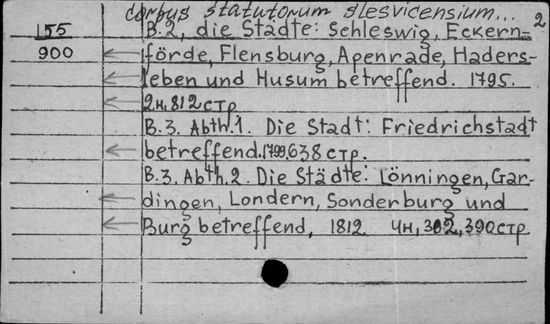 corpus statutorum slesvicensium... 2
155 B.2, die Städte: Schleswig, Eckern=
900 förde, Flensburg, Apenrade, Haders-
leben und Husum betreffend. 1795.
2н.812стр
B.3. Abth.1. Die Stadt: Friedrichstadt
betreffend.1799.638стр.
B.3. Abth.2. Die Städte: Lönningen, Gar-
dingen, Londern, Sonderburg und
Burg betreffend, 1812 4н, 302, 390стр